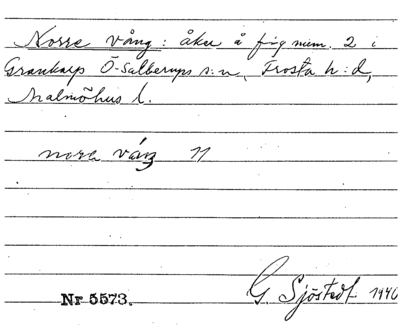 Norre vång: åker å fig num. 2 i
Ö-Sallerups s:n, Frosta h:d,
Malmöhus l.
norra vång 11
G. Sjöstedt 1946
Nr 5573.